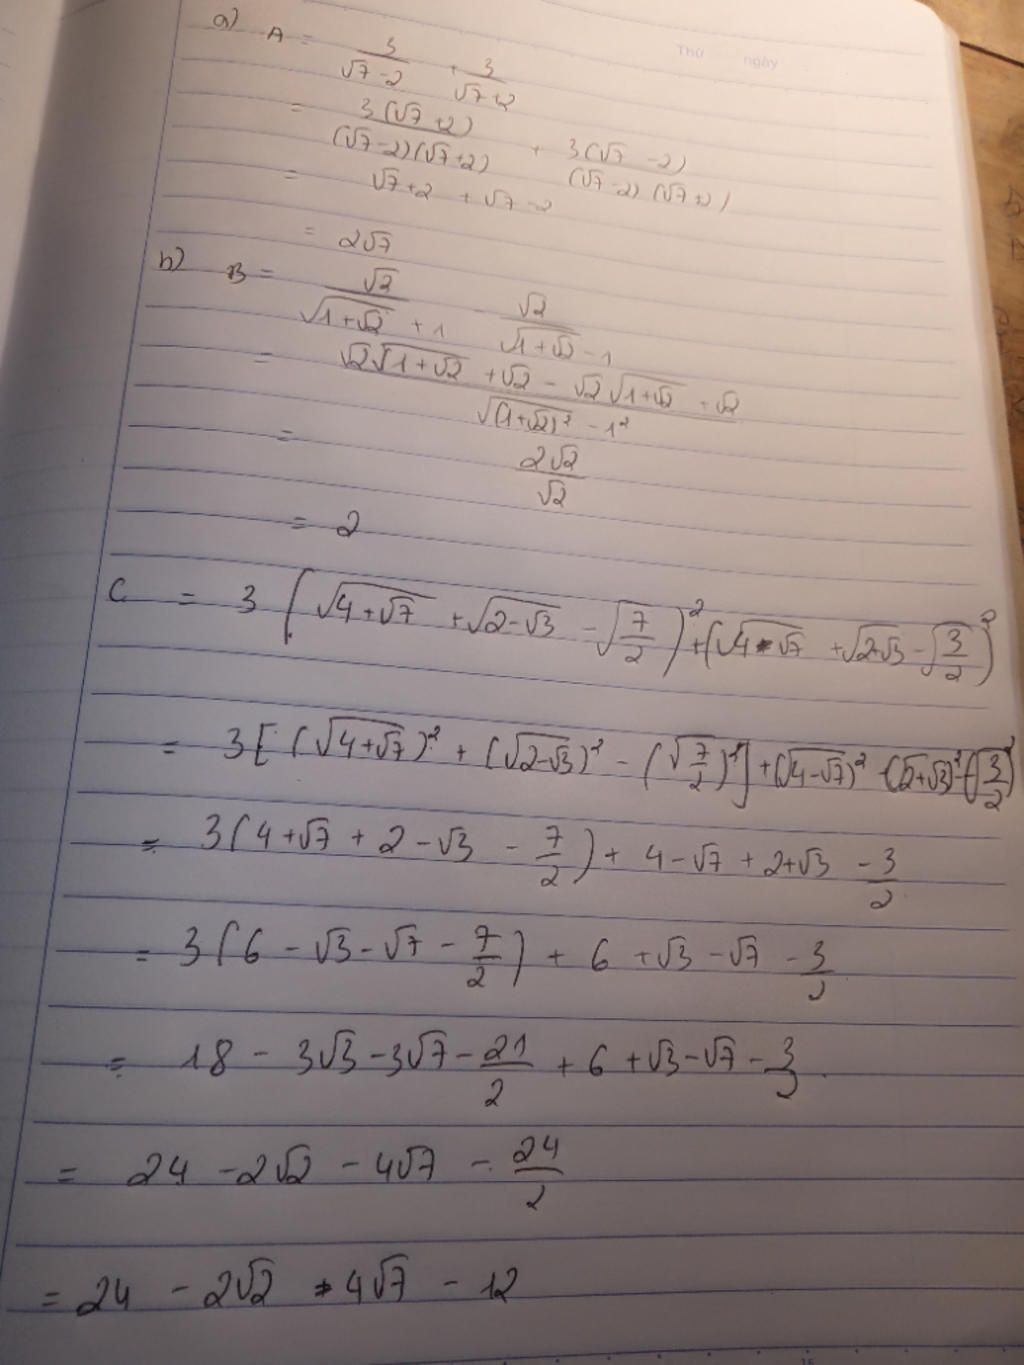 Thứ ngày
a) A = 3/(√7-2) + 3/(√7+2)
= 3(√7+2)/((√7-2)(√7+2)) + 3(√7-2)/((√7-2)(√7+2))
= √7+2 + √7-2
= 2√7
b) B = √2/(√(1+√2) + 1) - √2/(√(1+√2) - 1)
= (√2√(1+√2) + √2 - √2√(1+√2) + √2)/(√(1+√2)² - 1²)
= 2√2/√2
= 2
C = 3(√(4+√7) + √(2-√3) - √(7/2))² + (√(4-√7) + √(2+√3) - √(3/2))²
= 3[(√(4+√7))² + (√(2-√3))² - (√(7/2))²] + (√(4-√7))² + (√(2+√3))² - (√(3/2))²
= 3(4+√7 + 2-√3 - 7/2) + 4-√7 + 2+√3 - 3/2
= 3(6 - √3 - √7 - 7/2) + 6 + √3 - √7 - 3/2
= 18 - 3√3 - 3√7 - 21/2 + 6 + √3 - √7 - 3/2
= 24 - 2√2 - 4√7 - 24/2
= 24 - 2√2 - 4√7 - 12